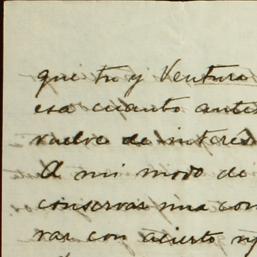 que tu y Ventura
esa cuanto antes
vuelve de interés
A mi modo de
conservar una con
rar con acierto